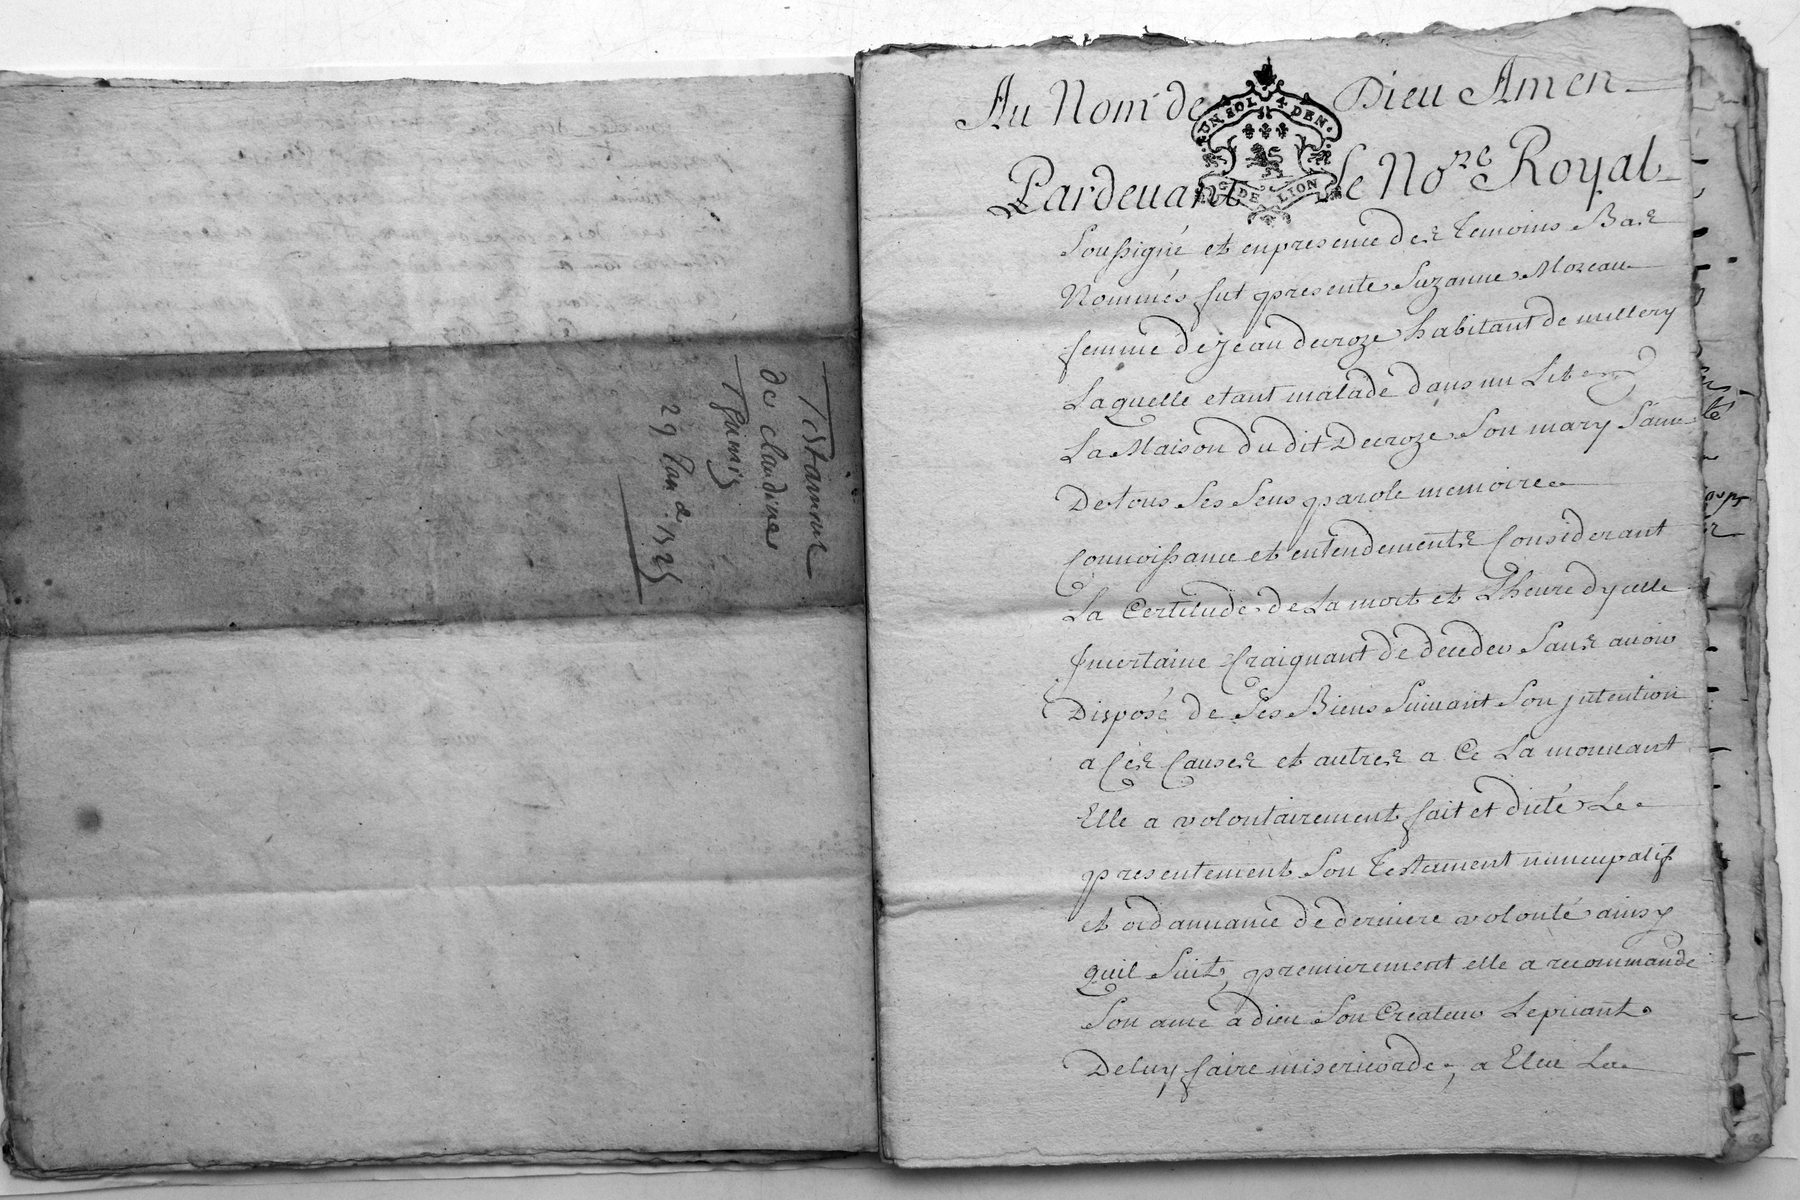 Testament
de claudine
29 Jan
Au Nom de Dieu Amen
UN SOL 4 DEN.
G. DE LION
Pardeuant le No.re Royal
Soussigné et enpresence des temoins Bas
Nommés fut presente Suzanne Moreau
femme de jean decroze habitant de millery
Laquelle etant malade dans un Lit en
La Maison du dit Decroze Son mary Saine
De tous Ses Sens parole memoire
Connoissance et entendements Considerant
La Certitude de La mort et L'heure dycelle
Incertaine Craignant de deceder Sans auoir
Disposé de Ses Biens Suiuant Son jntention
a Ces Causes et autres a Ce La mouuant
Elle a volontairement fait et dicté Le
presentement Son Testament nuncupatif
et ordannance de derniere volonté ainsy
quil Suit, premierement elle a recommandé
Son ame a dieu Son Createur Lepriant
Deluy faire misericorde, a Eleu La